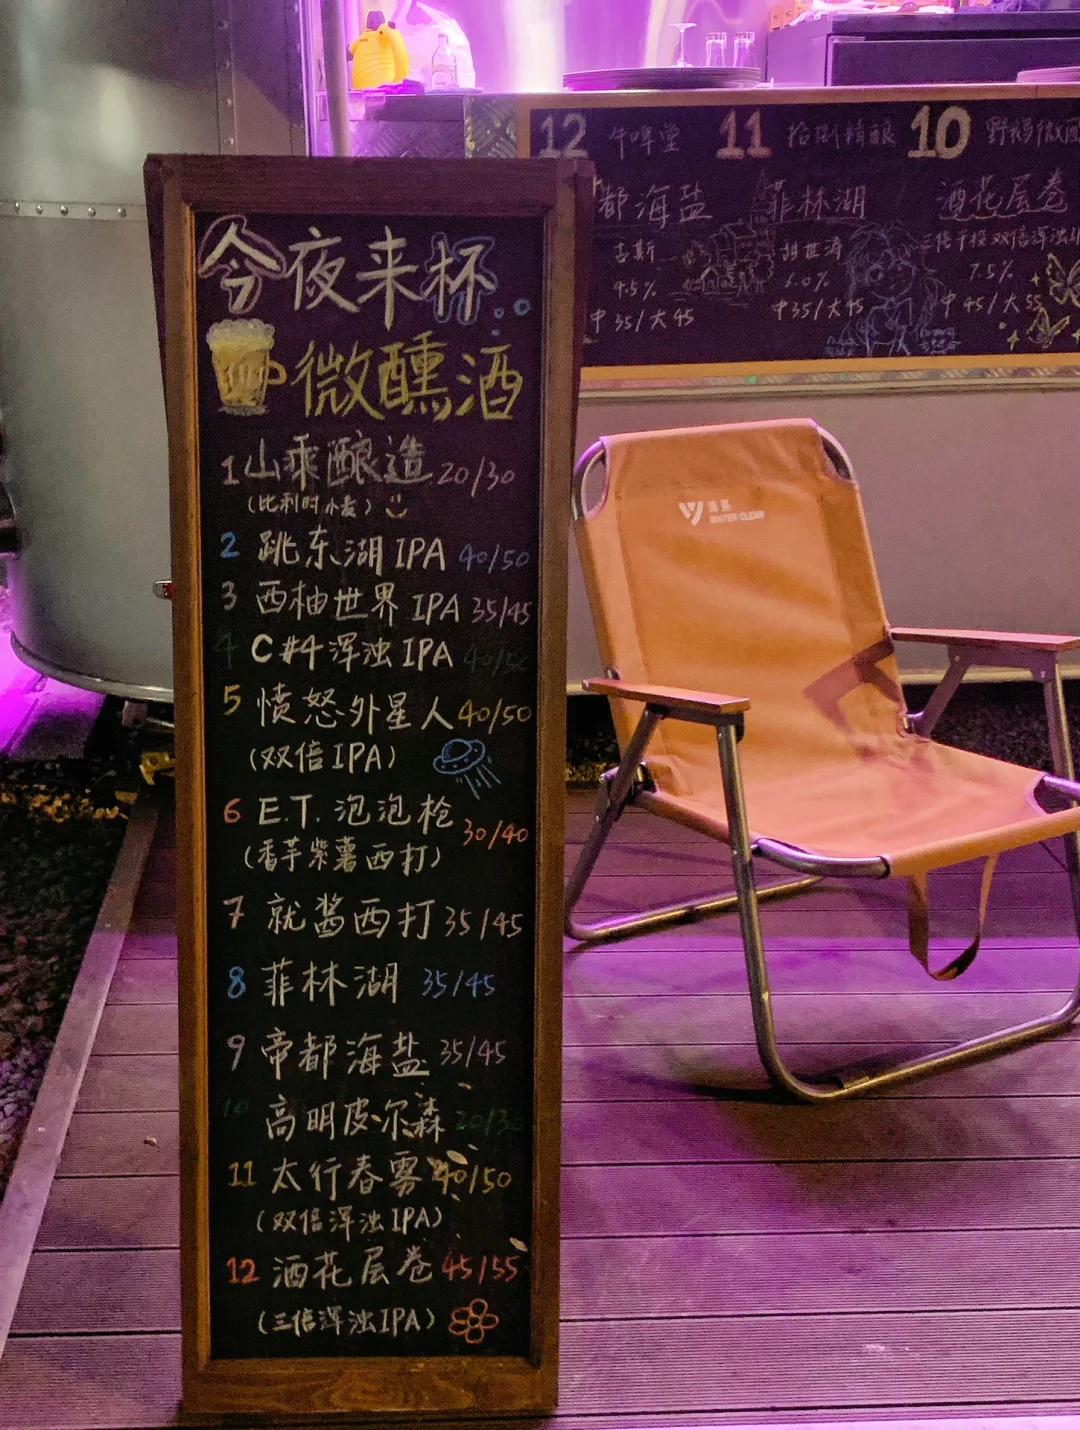 今夜来杯
微醺酒
1 山乘酿造 20/30
(比利时小麦)
2 跳东湖 IPA 40/50
3 西柚世界 IPA 35/45
4 C#4 浑浊 IPA 40/50
5 愤怒外星人 40/50
(双倍IPA)
6 E.T. 泡泡枪 30/40
(香芋紫薯西打)
7 就酱西打 35/45
8 菲林湖 35/45
9 帝都海盐 35/45
10 高明皮尔森 20/30
11 太行春雾 40/50
(双倍浑浊IPA)
12 酒花层卷 45/55
(三倍浑浊IPA)
12 牛啤堂
都海盐
古斯
4.5%
中35/大45
11 拾捌精酿
菲林湖
胡世涛
6.0%
中35/大45
10
酒花层卷
三倍干投 双倍浑浊
7.5%
中45/大55
WATER CLEAR